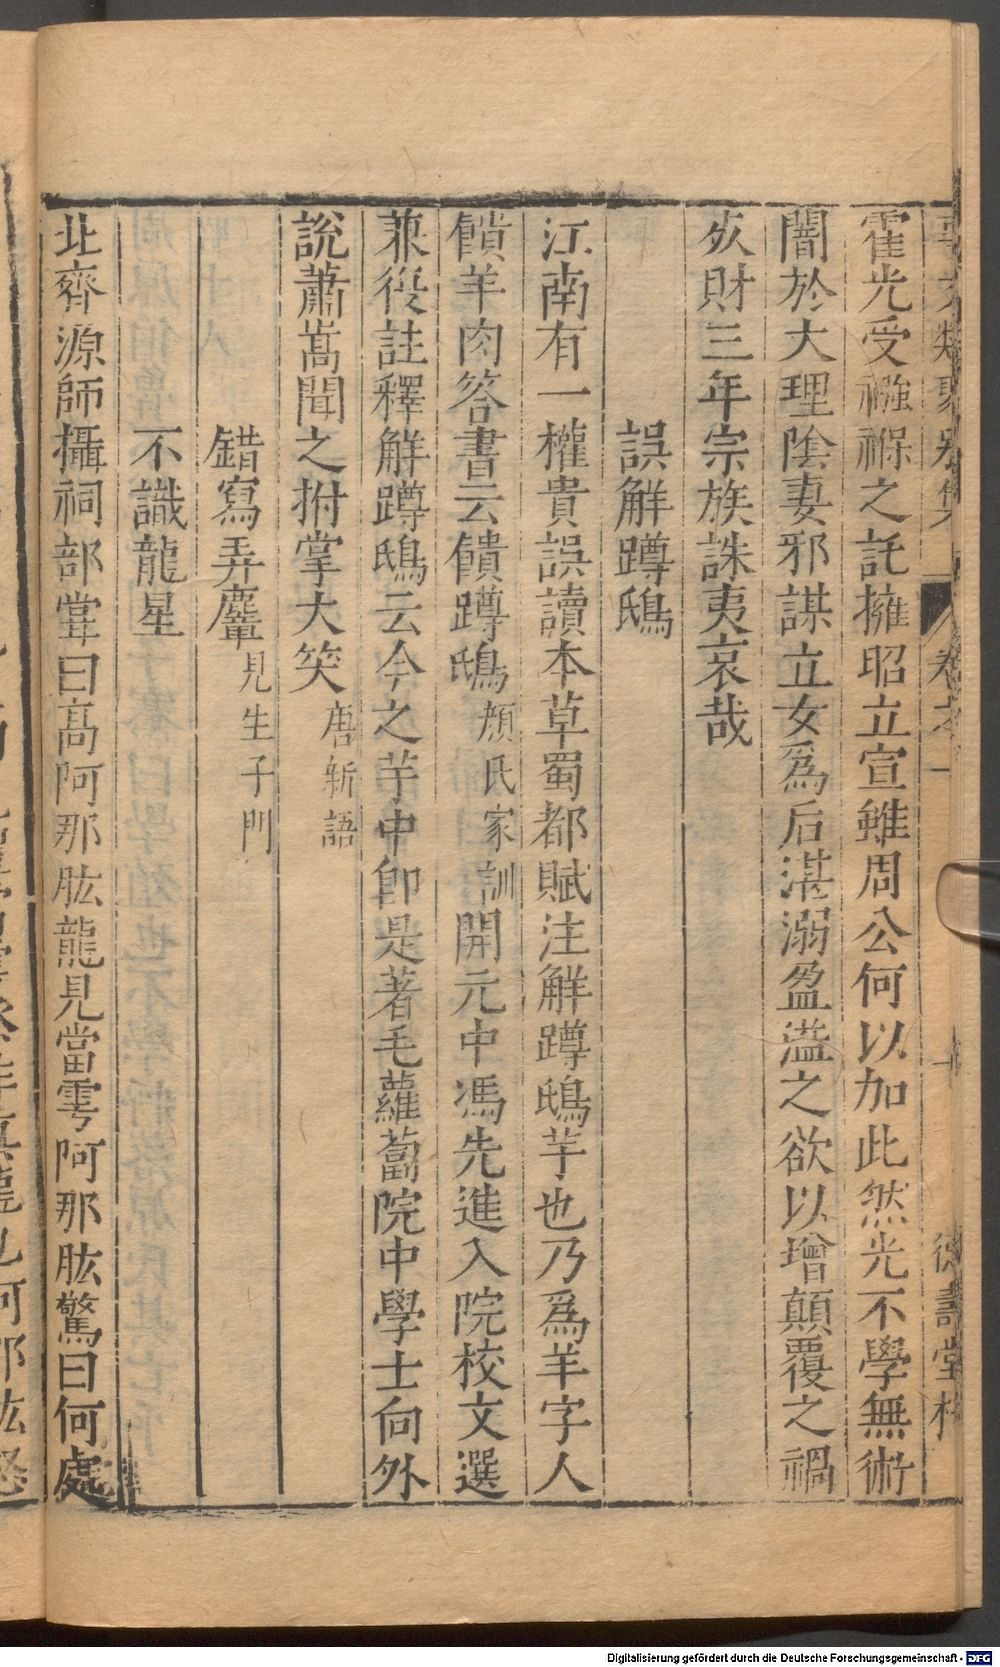 事文類聚別集 卷之一 十 德壽堂梓
霍光受襁褓之託擁昭立宣雖周公何以加此然光不學無術
闇於大理陰妻邪謀立女爲后湛溺盈溢之欲以增顛覆之禍
死財三年宗族誅夷哀哉
誤解蹲鴟
江南有一權貴誤讀本草蜀都賦注解蹲鴟芋也乃爲羊字人
饋羊肉答書云饋蹲鴟顔氏家訓開元中馮先進入院校文選
兼復註釋解蹲鴟云今之芋中卽是著毛蘿蔔院中學士向外
說蕭嵩聞之拊掌大笑唐新語
錯寫弄麞見生子門
不識龍星
北齊源師攝祠部嘗曰高阿那肱龍見當雩阿那肱驚曰何處
Digitalisierung gefördert durch die Deutsche Forschungsgemeinschaft - DFG